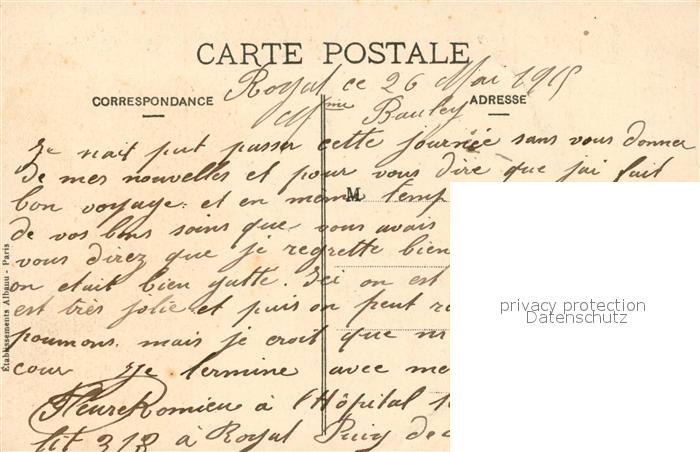 CARTE POSTALE
Royat ce 26 Mai 1915
CORRESPONDANCE
ADRESSE
Mme Bauley
Je nait put passer cette journée sans vous donner
de mes nouvelles et pour vous dire que jai fait
bon voyage. et en même temp
M
de vos bons soins que vous avais
vous direz que je regrette bien
on etait bien gatte. Ici on est
est très jolie et puis on peut
poumons. mais je croit que
cour Je termine avec me
Romieu à l'Hôpital
lit 318 à Royat Puy de
Établissements Albanu - Paris
privacy protection
Datenschutz